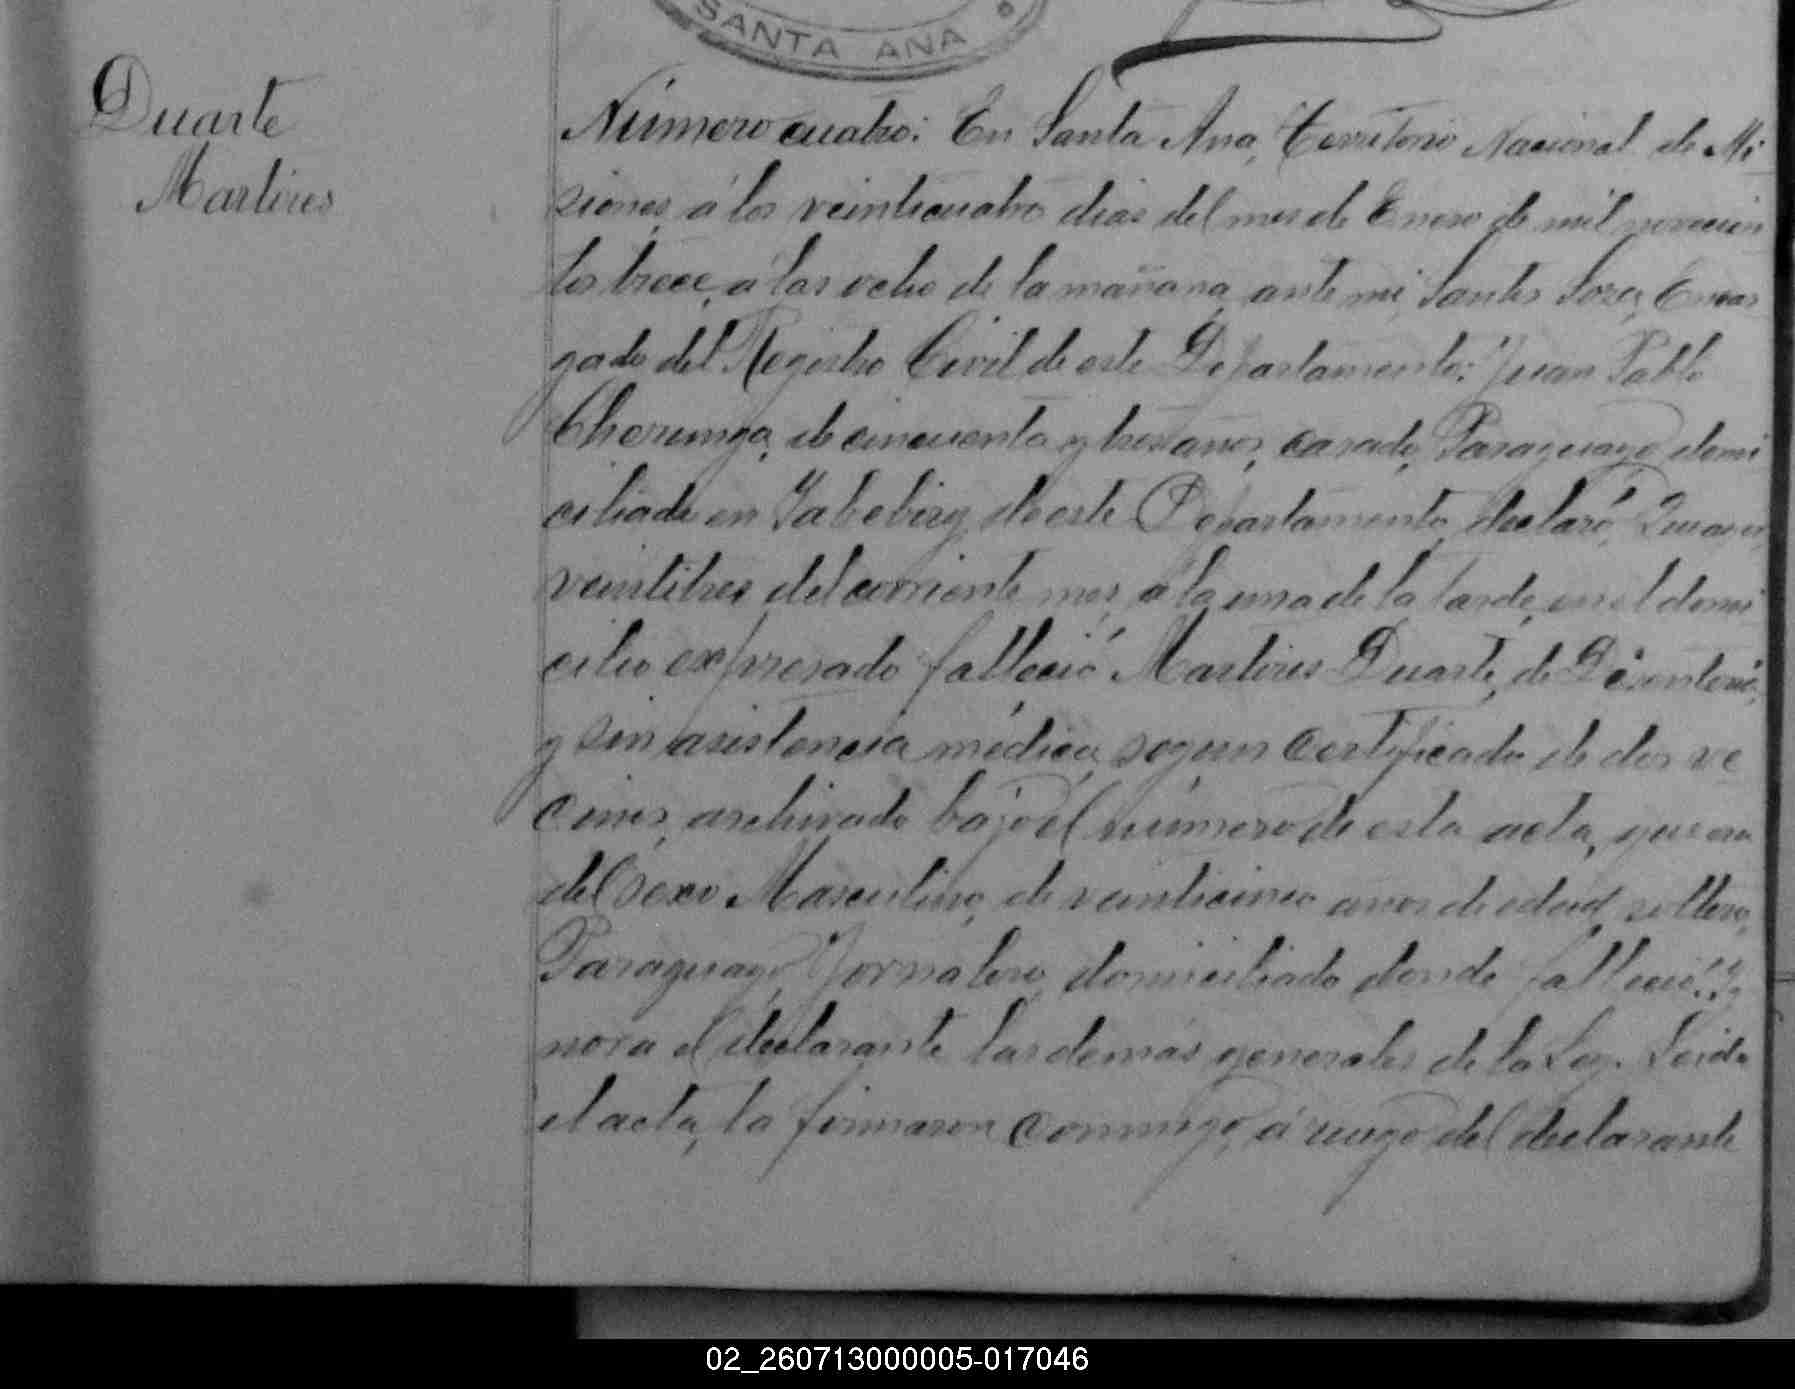 SANTA ANA
Duarte
Martires
Número cuatro: En Santa Ana, Territorio Nacional de Mi
siones, á los veinticuatro dias del mes de Enero de mil novecien
tos trece, á las ocho de la mañana, ante mi, Santos Soza, Encar
gado del Registro Civil de este Departamento: Juan Pablo
de cincuenta y tres años, casado, Paraguayo, domi
ciliado en Yabebiry, de este Departamento, declaró: Que ayer,
veintitres del corriente mes, a la una de la tarde, en el domi
cilio expresado falleció Martires Duarte, de Disenteria,
y sin asistencia médica, segun certificado de dos ve
cinos, archivado bajo el número de esta acta, que era
del sexo Masculino, de veinticinco años de edad, soltero,
Paraguayo, Jornalero, domiciliado donde falleció: Yg
nora el declarante las demás generales de la Ley. Leida
el acta, la firmaron conmigo, á ruego del declarante
02_260713000005-017046